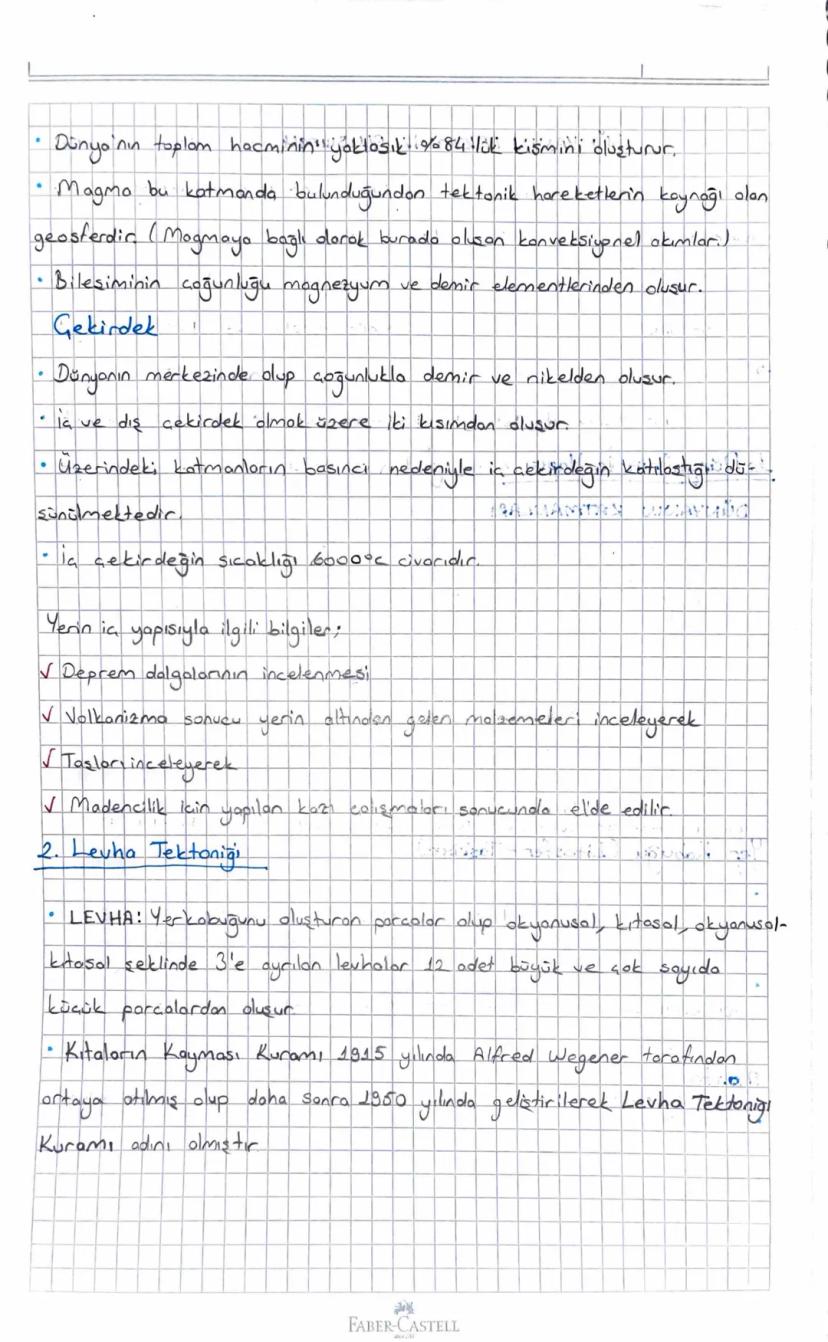 • Dünya'nın toplam hacminin yaklaşık %84'lük kısmını oluşturur.
• Magma bu katmanda bulunduğundan tektonik hareketlerin kaynağı olan
geosferdir. (Magmaya bağlı olarak burada oluşan konveksiyonel akımlar.)
• Bileşiminin çoğunluğu magnezyum ve demir elementlerinden oluşur.
Çekirdek
• Dünyanın merkezinde olup çoğunlukla demir ve nikelden oluşur.
• İç ve dış çekirdek olmak üzere iki kısımdan oluşur.
• Üzerindeki katmanların basıncı nedeniyle iç çekirdeğin katılaştığı dü-
şünülmektedir.
• İç çekirdeğin sıcaklığı 6000°C civarıdır.
Yerin iç yapısıyla ilgili bilgiler;
√ Deprem dalgalarının incelenmesi
√ Volkanizma sonucu yerin altından gelen malzemeleri inceleyerek
√ Taşları inceleyerek
√ Madencilik için yapılan kazı çalışmaları sonucunda elde edilir.
2. Levha Tektoniği
• LEVHA: Yerkabuğunu oluşturan parçalar olup okyanusal, kıtasal, okyanusal-
kıtasal şeklinde 3'e ayrılan levhalar 12 adet büyük ve çok sayıda
küçük parçalardan oluşur.
• Kıtaların Kayması Kuramı 1915 yılında Alfred Wegener tarafından
ortaya atılmış olup daha sonra 1960 yılında geliştirilerek Levha Tektoniği
Kuramı adını almıştır.
FABER-CASTELL